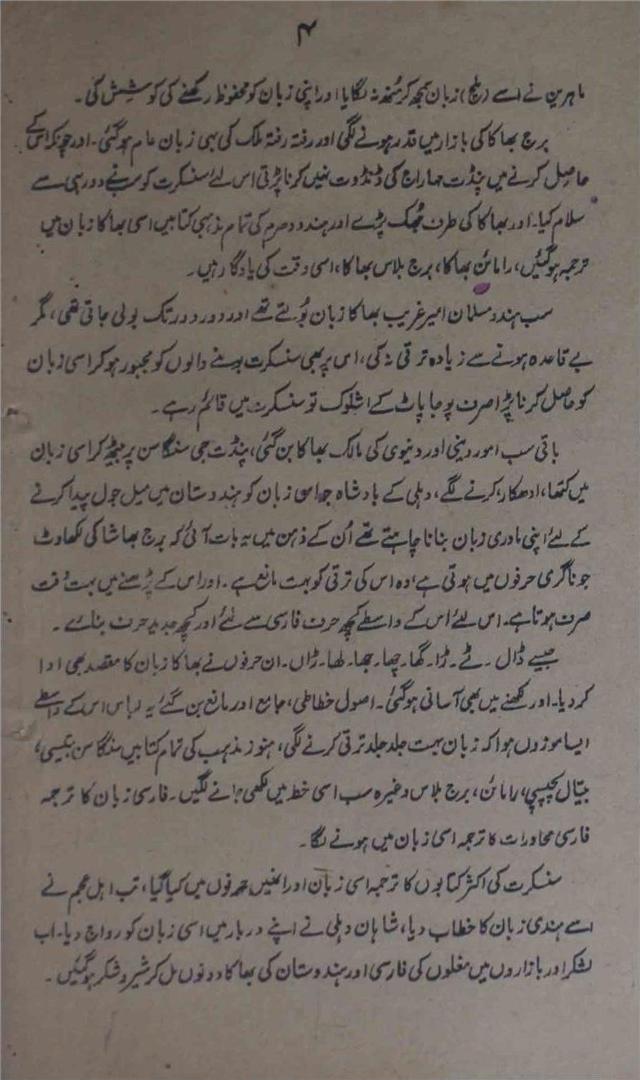 ۴
ماہرین نے اسے (ملیچ) زبان سمجھ کر منھ نہ لگایا اور اپنی زبان کو محفوظ رکھنے کی کوشش کی۔
برج بھاکا کی بازار میں قدر ہونے لگی اور رفتہ رفتہ ملک کی یہی زبان عام ہوگئی۔ اور چونکہ اس کے
حاصل کرنے میں پنڈت مہاراج کی ڈنڈوت نہیں کرنا پڑتی اس لئے سنسکرت کو سب نے دور ہی سے
سلام کیا۔ اور بھاکا کی طرف جھک پڑے اور ہندو دھرم کی تمام مذہبی کتابیں اسی بھاکا زبان میں
ترجمہ ہوگئیں، رامائن بھاکا، برج بلاس بھاکا، اسی وقت کی یادگار ہیں۔
سب ہندو مسلمان امیر غریب بھاکا زبان بولتے تھے اور دور دور تک بولی جاتی تھی، مگر
بے قاعدہ ہونے سے زیادہ ترقی نہ کی، اس پر بھی سنسکرت بولنے والوں کو مجبور ہوکر اسی زبان
کو حاصل کرنا پڑا صرف پوجا پاٹ کے اشلوک تو سنسکرت میں قائم رہے۔
باقی سب امور دینی اور دنیوی کی مالک بھاکا بن گئی، پنڈت جی سنگاسن پر بیٹھ کر اسی زبان
میں کتھا، ادھکار، کرنے لگے، دہلی کے بادشاہ جو اس زبان کو ہندوستان میں میل جول پیدا کرنے
کے لئے اپنی مادری زبان بنانا چاہتے تھے اُن کے ذہن میں یہ بات آئی کہ برج بھاشا کی لکھاوٹ
جو ناگری حرفوں میں ہوتی ہے، وہ اس کی ترقی کو بہت مانع ہے۔ اور اس کے پڑھنے میں بہت وقت
صرف ہوتا ہے۔ اس لئے اس کے واسطے کچھ حرف فارسی سے لئے اور کچھ جدید حرف بنائے۔
جیسے ڈال۔ ٹے۔ ڑا۔ گھا۔ چھا۔ جھا۔ لھا۔ ڑاں۔ ان حرفوں نے بھاکا زبان کا مقصد بھی ادا
کردیا۔ اور لکھنے میں بھی آسانی ہوگئی۔ اصول خطاطی، جامع اور مانع بن گئے یہ لباس اس کے واسطے
ایسا موزوں ہوا کہ زبان بہت جلد جلد ترقی کرنے لگی، ہنود مذہب کی تمام کتابیں سنگاسن بتیسی،
بیتال پچیسی، رامائن، برج بلاس وغیرہ سب اسی خط میں لکھی جانے لگیں۔ فارسی زبان کا ترجمہ
فارسی محاورات کا ترجمہ اسی زبان میں ہونے لگا۔
سنسکرت کی اکثر کتابوں کا ترجمہ اسی زبان اور انہیں حرفوں میں کیا گیا، تب اہل عجم نے
اسے ہندی زبان کا خطاب دیا، شاہان دہلی نے اپنے دربار میں اسی زبان کو رواج دیا۔ اب
لشکر اور بازاروں میں مغلوں کی فارسی اور ہندوستان کی بھاکا دونوں مل کر شیر و شکر ہوگئیں۔